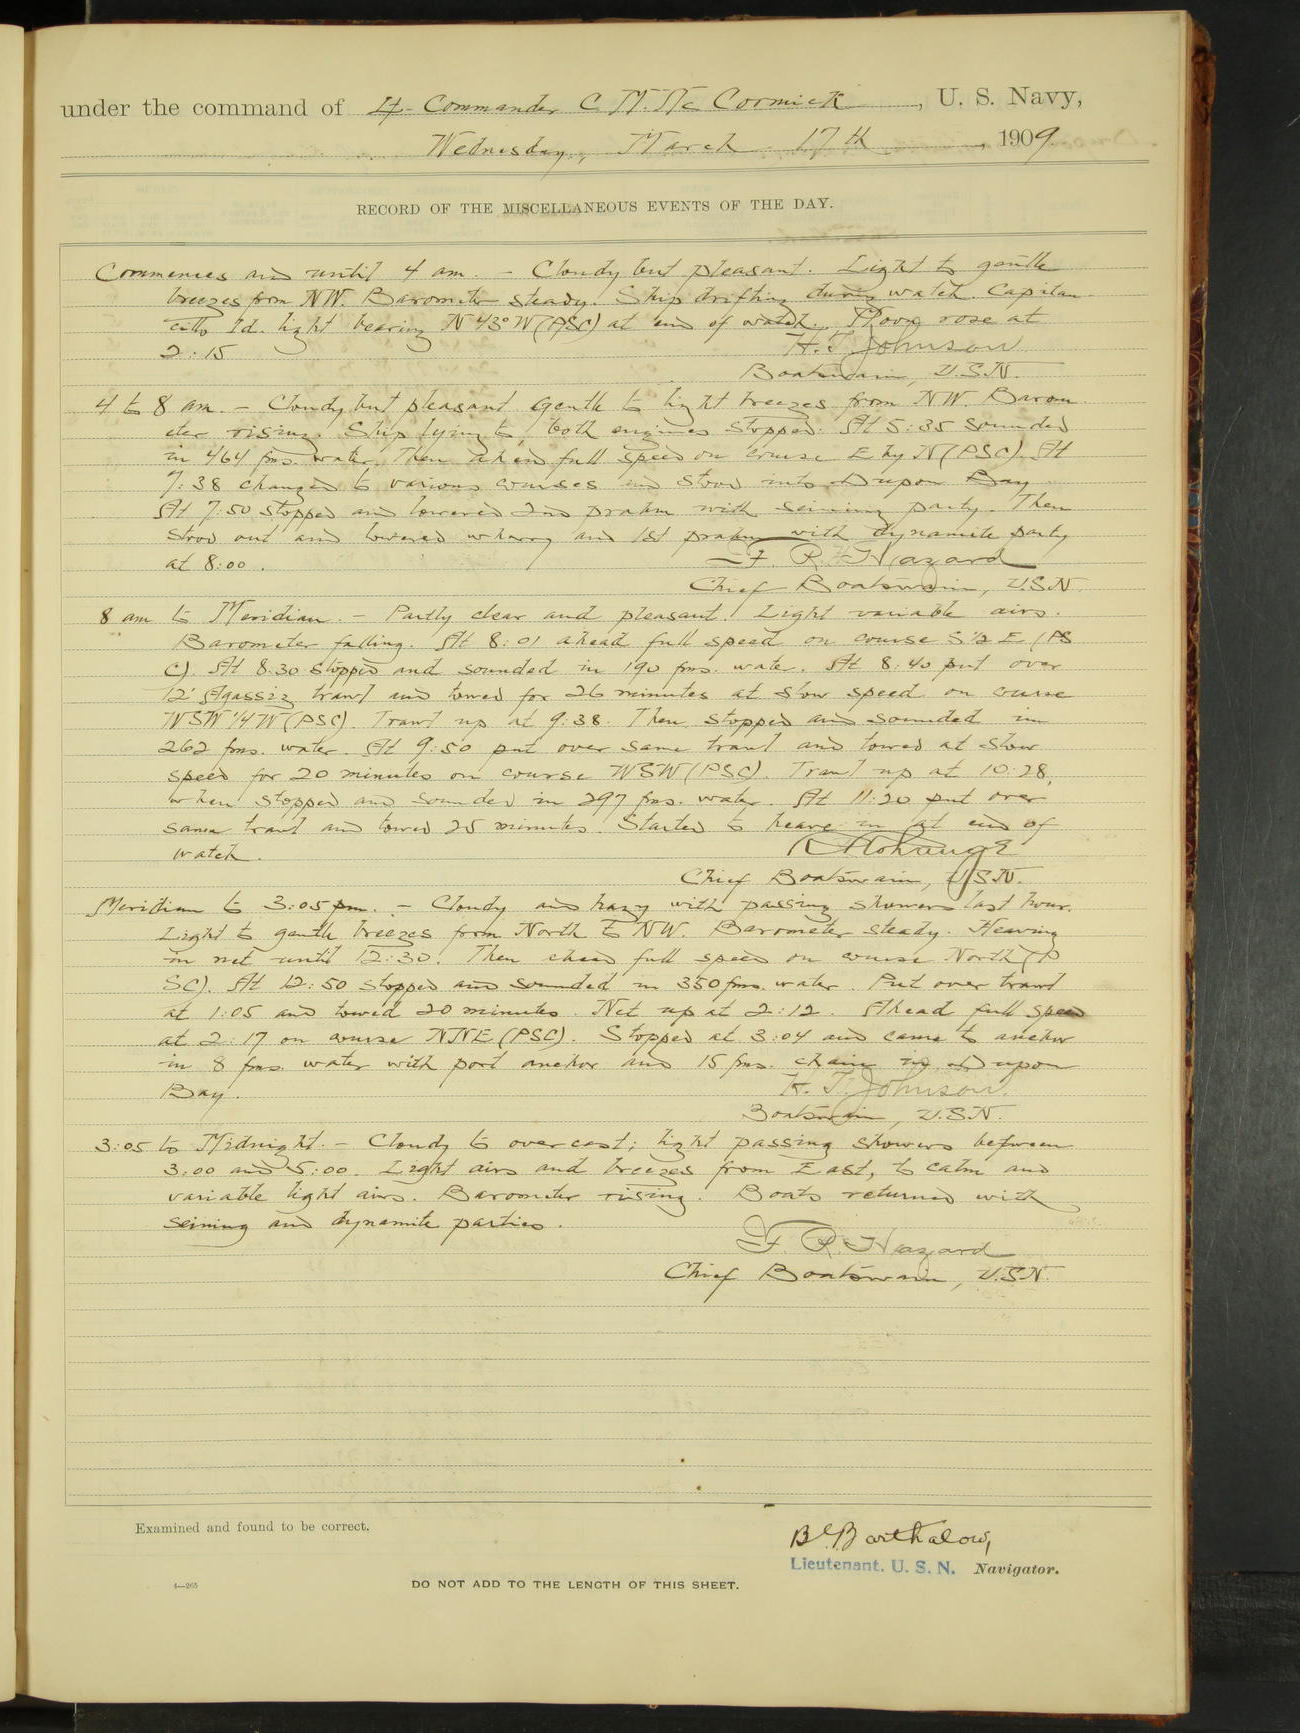 under the command of Lt. Commander C. M. Mc Cormick, U. S. Navy,
Wednesday, March 17th, 1909.
RECORD OF THE MISCELLANEOUS EVENTS OF THE DAY.
Commences and until 4 am. - Cloudy but pleasant. Light to gentle
breezes from NW. Barometer steady. Ship drifting during watch. Capitan
cillo Id. light bearing N 43° W (PSC) at end of watch. Moon rose at
2:15
H. T. Johnson
Boatswain, U.S.N.
4 to 8 am. - Cloudy but pleasant Gentle to light breezes from NW. Barom
eter rising. Ship lying to, both engines stopped. At 5:35 sounded
in 464 fms. water. Then ahead full speed on course E by N (PSC) At
7:38 changed to various courses and stood into Dupon Bay.
At 7:50 stopped and lowered 2nd prahm with seining party. Then
stood out and lowered wherry and 1st prahm with dynamite party
at 8:00.
F. R. Hazard
Chief Boatswain, U.S.N.
8 am to Meridian. - Partly clear and pleasant. Light variable airs.
Barometer falling. At 8:01 ahead full speed on course S ½ E (PS
C). At 8:30 stopped and sounded in 190 fms. water. At 8:40 put over
12' Agassiz trawl and towed for 26 minutes at slow speed on course
WSW ¼ W (PSC). Trawl up at 9:38. Then stopped and sounded in
262 fms. water. At 9:50 put over same trawl and towed at slow
speed for 20 minutes on course WSW (PSC). Trawl up at 10:28,
when stopped and sounded in 297 fms. water. At 11:20 put over
same trawl and towed 25 minutes. Started to heave in at end of
watch.
Chief Boatswain, U.S.N.
Meridian to 3:05 pm. - Cloudy and hazy with passing showers last hour.
Light to gentle breezes from North to NW. Barometer steady. Heaving
in net until 12:30. Then ahead full speed on course North (P
SC). At 12:50 stopped and sounded in 350 fms. water. Put over trawl
at 1:05 and towed 20 minutes. Net up at 2:12. Ahead full speed
at 2:17 on course NNE (PSC). Stopped at 3:04 and came to anchor
in 8 fms. water with port anchor and 15 fms. chain in Dupon
Bay.
H. T. Johnson.
Boatswain, U.S.N.
3:05 to Midnight. - Cloudy to overcast; light passing showers between
3:00 and 5:00. Light airs and breezes from East, to calm and
variable light airs. Barometer rising. Boats returned with
seining and dynamite parties.
F. R. Hazard
Chief Boatswain, U.S.N.
Examined and found to be correct.
Barthalow,
Lieutenant, U. S. N. Navigator.
4—265
DO NOT ADD TO THE LENGTH OF THIS SHEET.